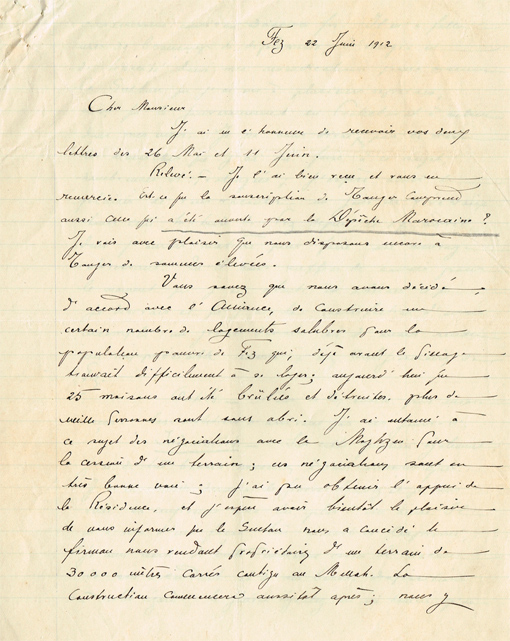 Fez 22 Juin 1912
Cher Monsieur
J'ai eu l'honneur de recevoir vos deux
lettres des 26 Mai et 11 Juin.
Relevé. — Je l'ai bien reçu et vous en
remercie. Est-ce que la souscription de Tanger comprend
aussi celle qui a été ouverte par la Dépêche Marocaine ?
Je vois avec plaisir que nous disposons encore à
Tanger de sommes élevées.
Vous savez que nous avons décidé,
d'accord avec l'Alliance, de construire un
certain nombre de logements salubres pour la
population pauvre de Fez qui, déjà avant le pillage
trouvait difficilement à se loger; aujourd'hui que
25 maisons ont été brûlées et détruites, plus de
mille personnes sont sans abri. J'ai entamé à
ce sujet des négociations avec le Maghzen pour
la cession d'un terrain; ces négociations sont en
très bonne voie; j'ai pu obtenir l'appui de
la Résidence, et j'espère avoir bientôt le plaisir
de vous informer que le Sultan nous a concédé le
firman nous rendant propriétaires d'un terrain de
30000 mètres carrés contigu au Mellah. La
construction commencera aussitôt après; nous y